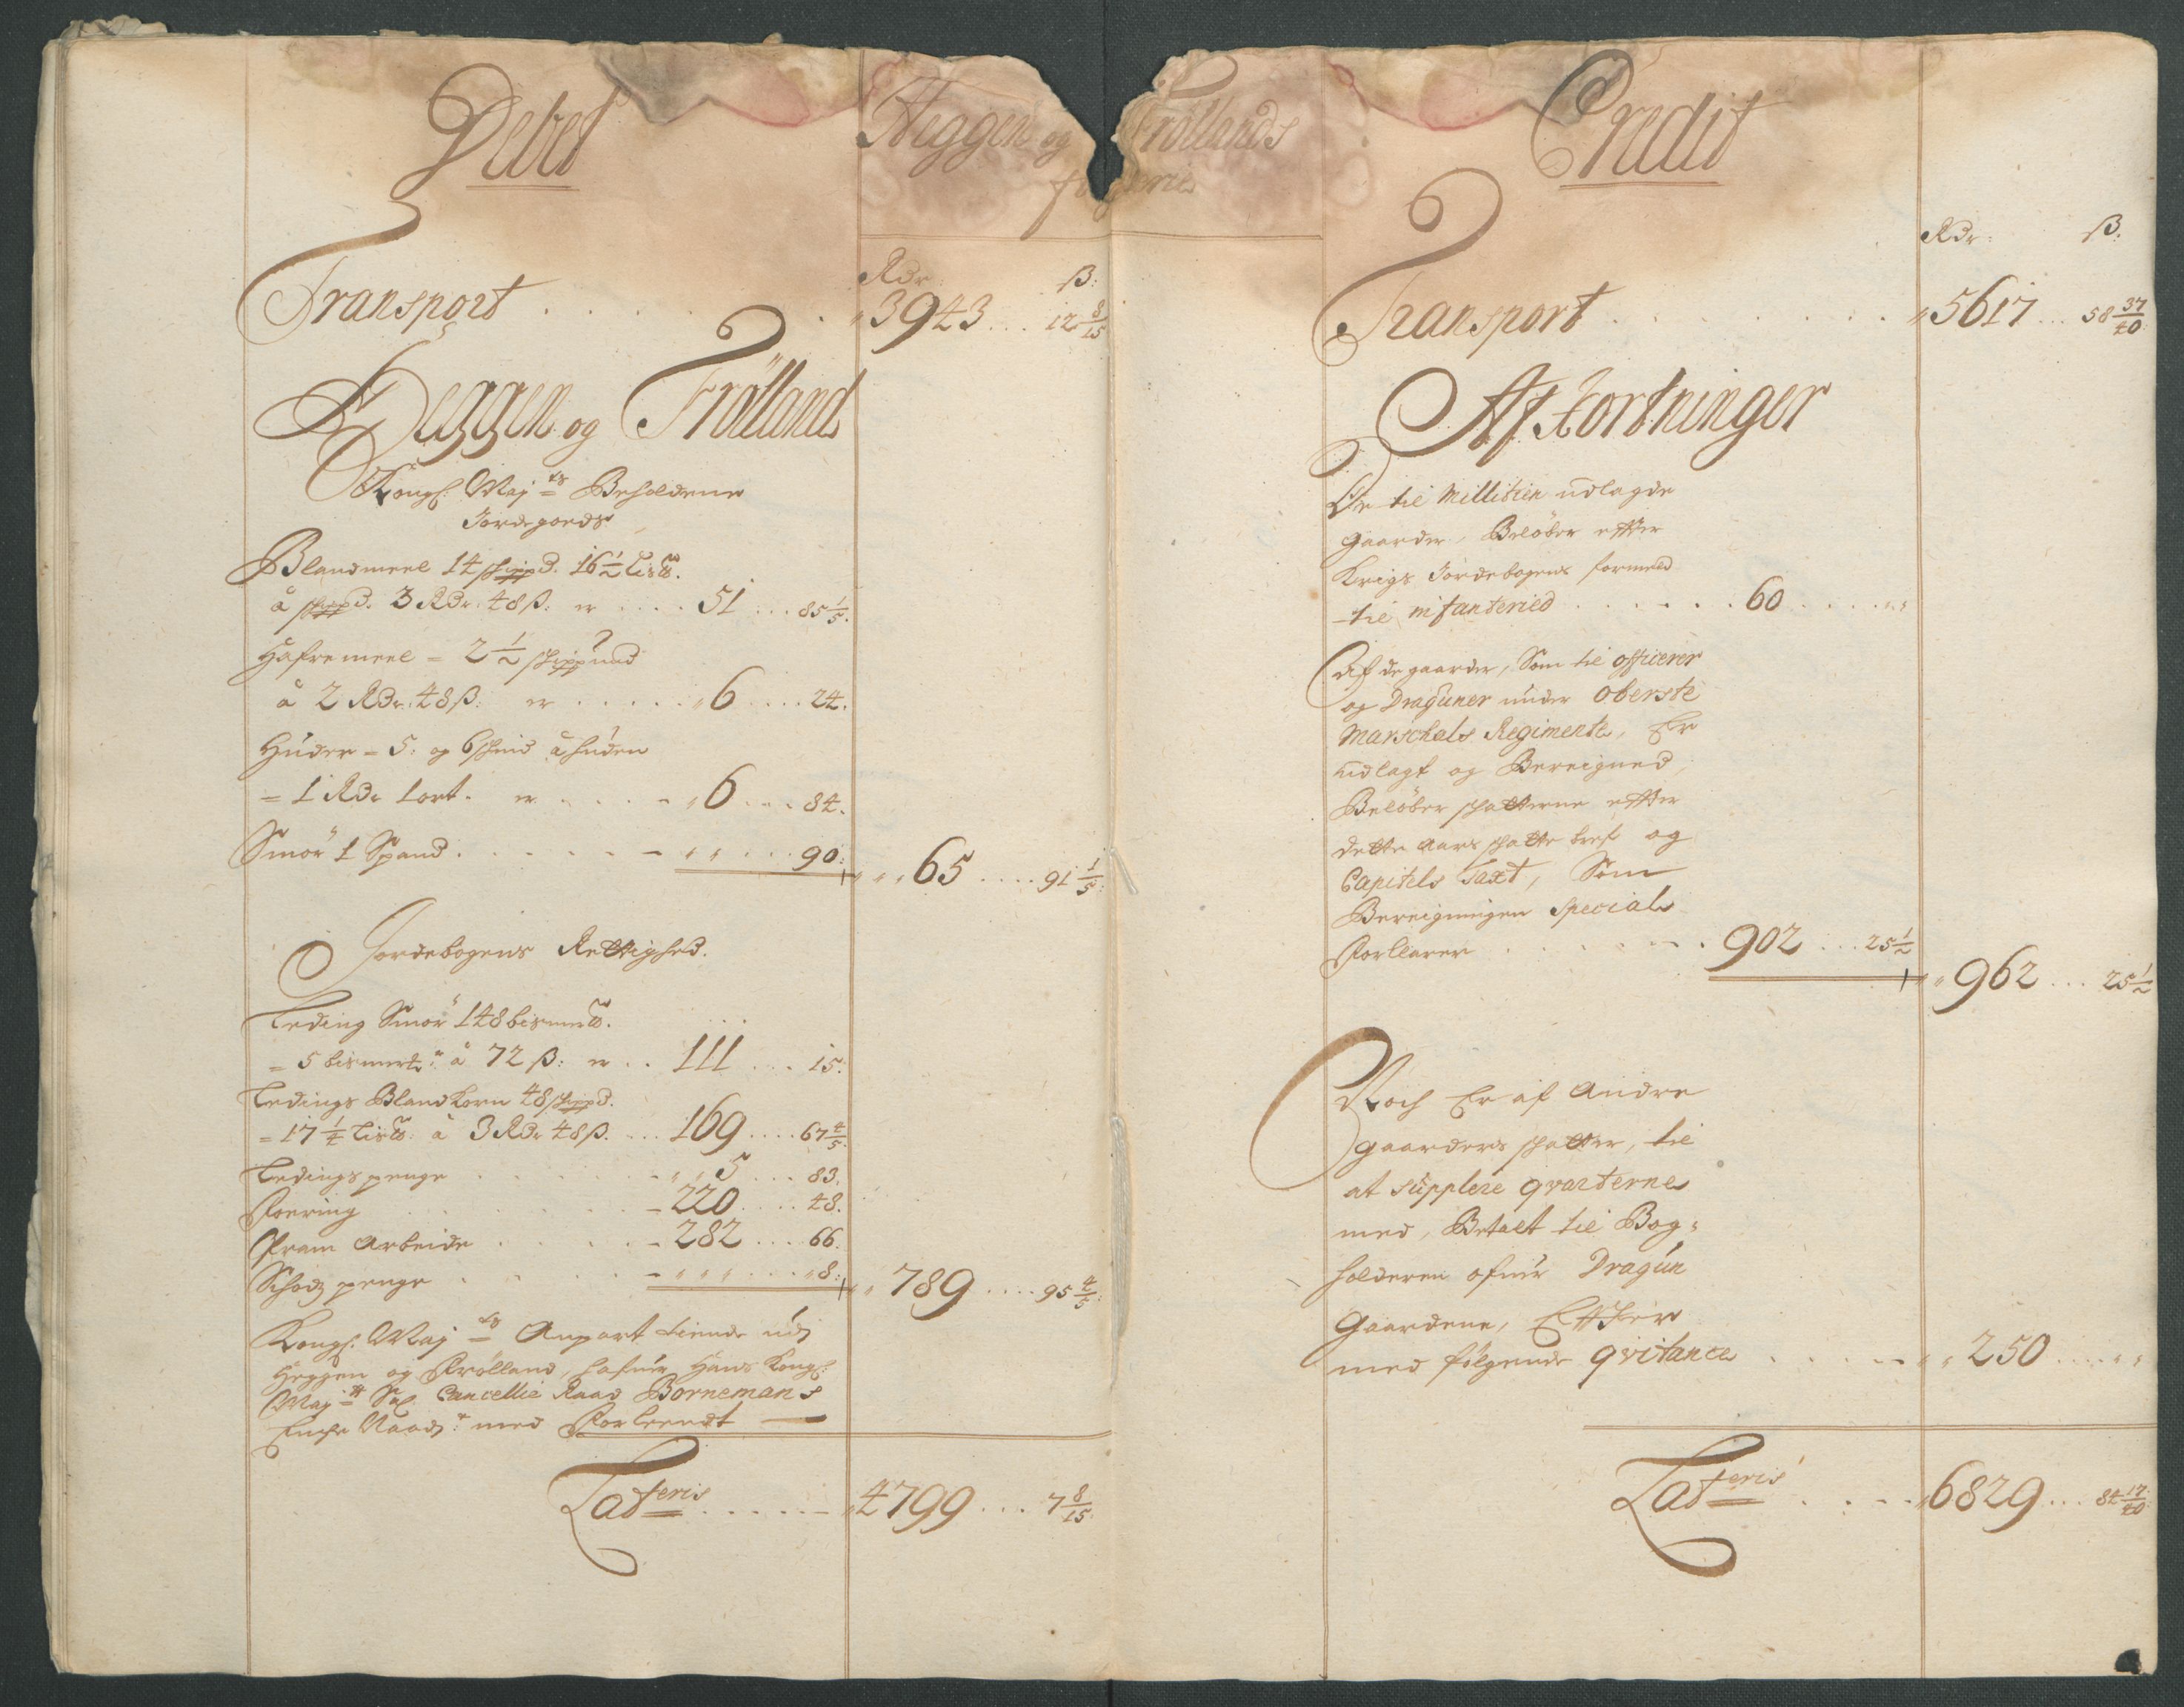 Debet
Heggen og Frøllands
fogderie
Rdr: ß:
Transport . . . . . . . 3943 . . . 12 8/15
Heggen og Frølland
Kongl: Maj ts Beholdene
Jordegoeds
Blandmeel 14 schippd. 16½ lis℔.
å schippd. 3 Rdr. 48 ß: er . . . . 51 . . . 85 1/5.
Hafremeel = 2½ schippund
å 2 Rdr. 48 ß: er . . . . . 6 . . . . 24.
Huder = 5: og 6 schind å huden
= 1 Rdr 1 ort. er . . . . - 6 . . . 84.
Smør 1 Spand . . . . . . - . . . 90:
65 . . . . 91 1/5:
Jordebogens Rettighed.
Leding Smør 148 bismer℔.
= 5 bismerk: å 72 ß: er . . 111 . . . 15:
Ledings Blandkorn 48 schippd.
= 17¼ lis℔: å 3 Rdr 48 ß. . . . 169 . . . . 67 4/5.
Ledings penge . . . . . . - 5 . . . 83.
Foering . . . . . . . - 220 . . . . 48.
Fram Arbeide . . . . . - 282 . . . 66.
Schog penge . . . . . . - . . . . 8:
789 . . . . 95 4/5:
Kongl: Maj ts Anpart tiende udj
Heggen og Frølland, hafuer Hans Kongl:
Maj tt Sal: Cancellie Raad Bornemans
Enche Naadt: med Forleendt —
Lateris . . . . . - 4799 . . . 7 8/15.
Credit
Rdr: ß:
Transport . . . . . . . . 5617 . . . 58 37/40:
Afkortninger
De til Millitien udlagde
gaarder, Beløber efter
Krigs Jordebogens formeld
til infanteried . . . . . . 60 . . . . .
Af de gaarder, Som til officerer
og Draguner under Oberste
Marschals Regimente, Er
udlagt og Bereigned,
Beløber schatterne efter
dette Aars schatte bref og
Capitels Taxt, Som
Bereigningen Specials
Forklarer . . . . . . - . 902 . . . 25½
962 . . . 25½
Noch Er af Andre
gaarders schatter, til
at supplere qvarterne
med, Betalt til Bog-
holderen ofuer Dragun
Gaardene, Efter
med følgende qvitance . . . . . - 250 . . . .
Lateris . . . - 6829 . . . 84 17/40: